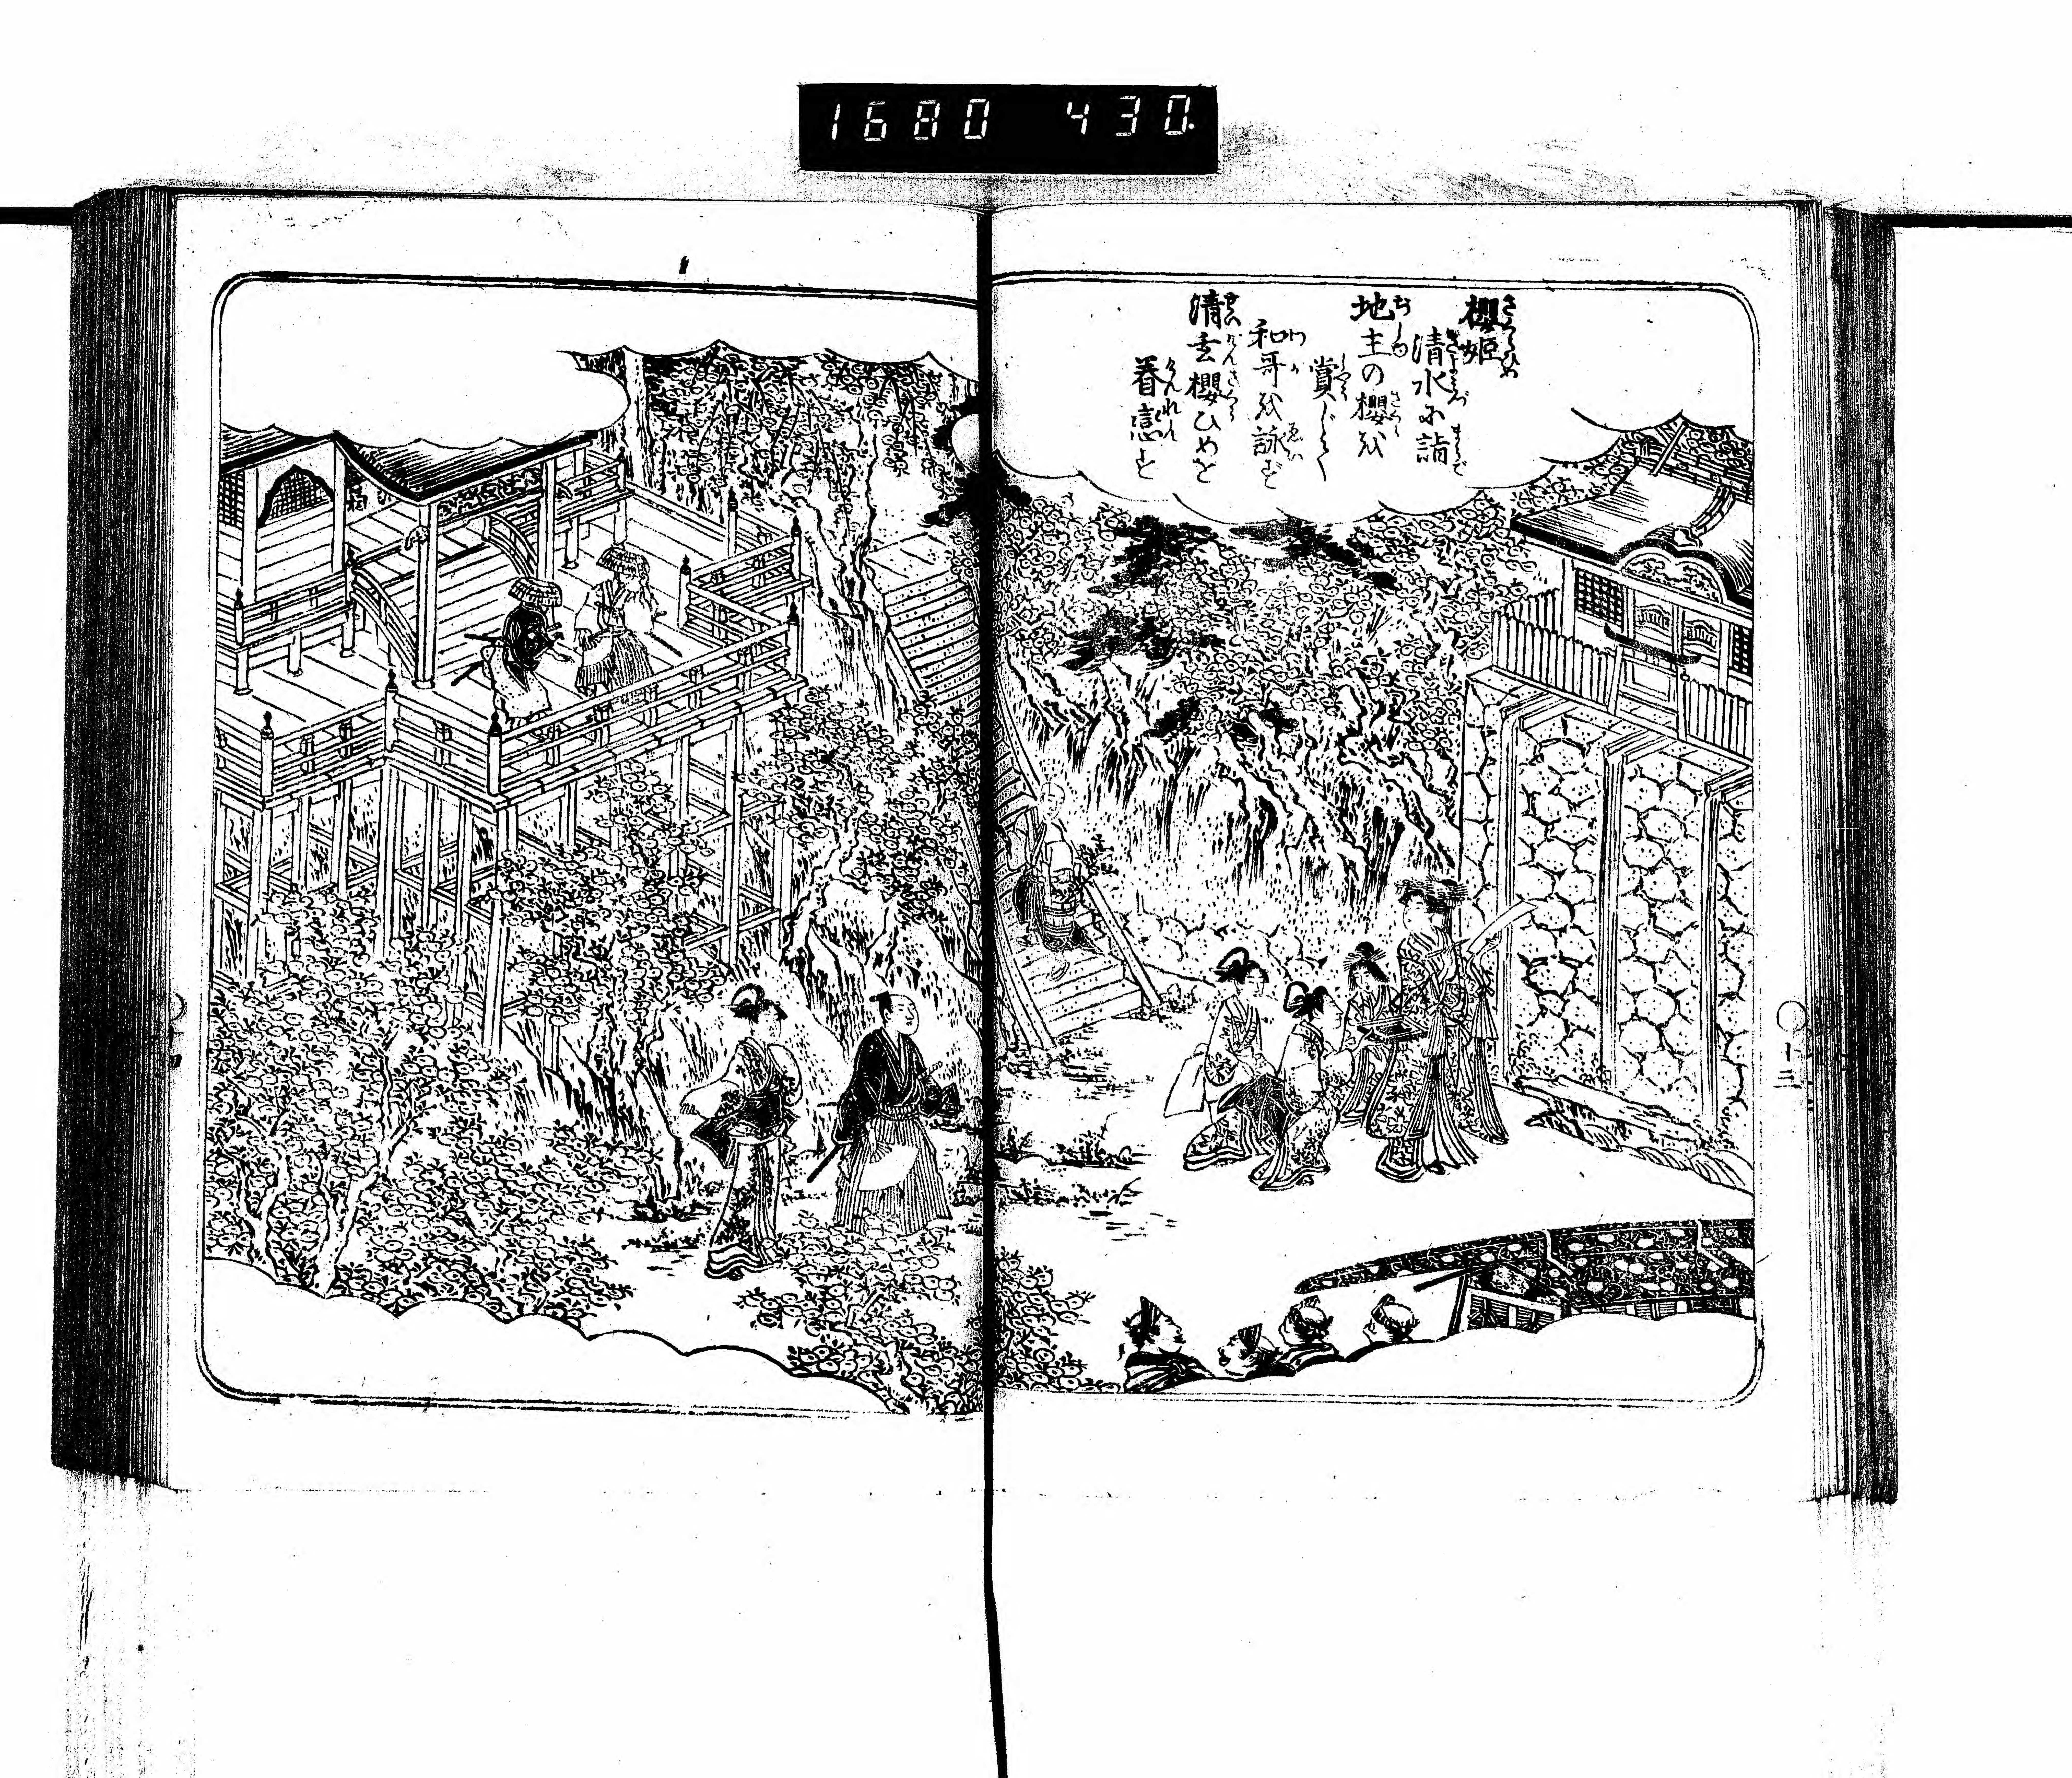 1680 430.
櫻姫
清水に詣
地主の櫻を
賞じて
和哥を詠ず
清玄櫻ひめを
眷戀す
十三